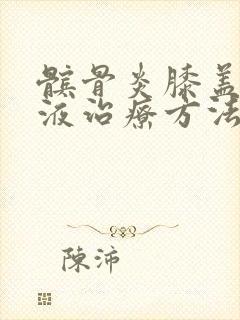 髌骨炎膝盖
液治疗方法
陳沛